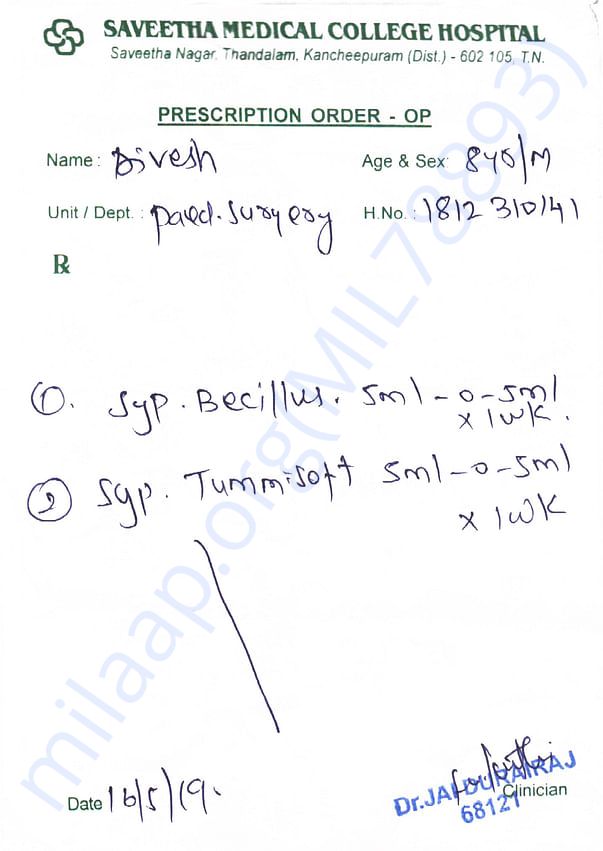 SAVEETHA MEDICAL COLLEGE HOSPITAL
Saveetha Nagar, Thandalam, Kancheepuram (Dist.) - 602 105, T.N.
PRESCRIPTION ORDER - OP
Name : Divesh
Age & Sex: 8yo/M
Unit / Dept. : Paed. Surgery
H.No. : 1812310141
℞
1. Syp. Becillus. 5ml - 0 - 5ml
x 1 WK.
2 Syp. Tummisoft 5ml - 0 - 5ml
x 1 WK
Date 16/5/19.
Dr.JAI DURAIRAJ
68121
Clinician
milaap.org(MIL78893)